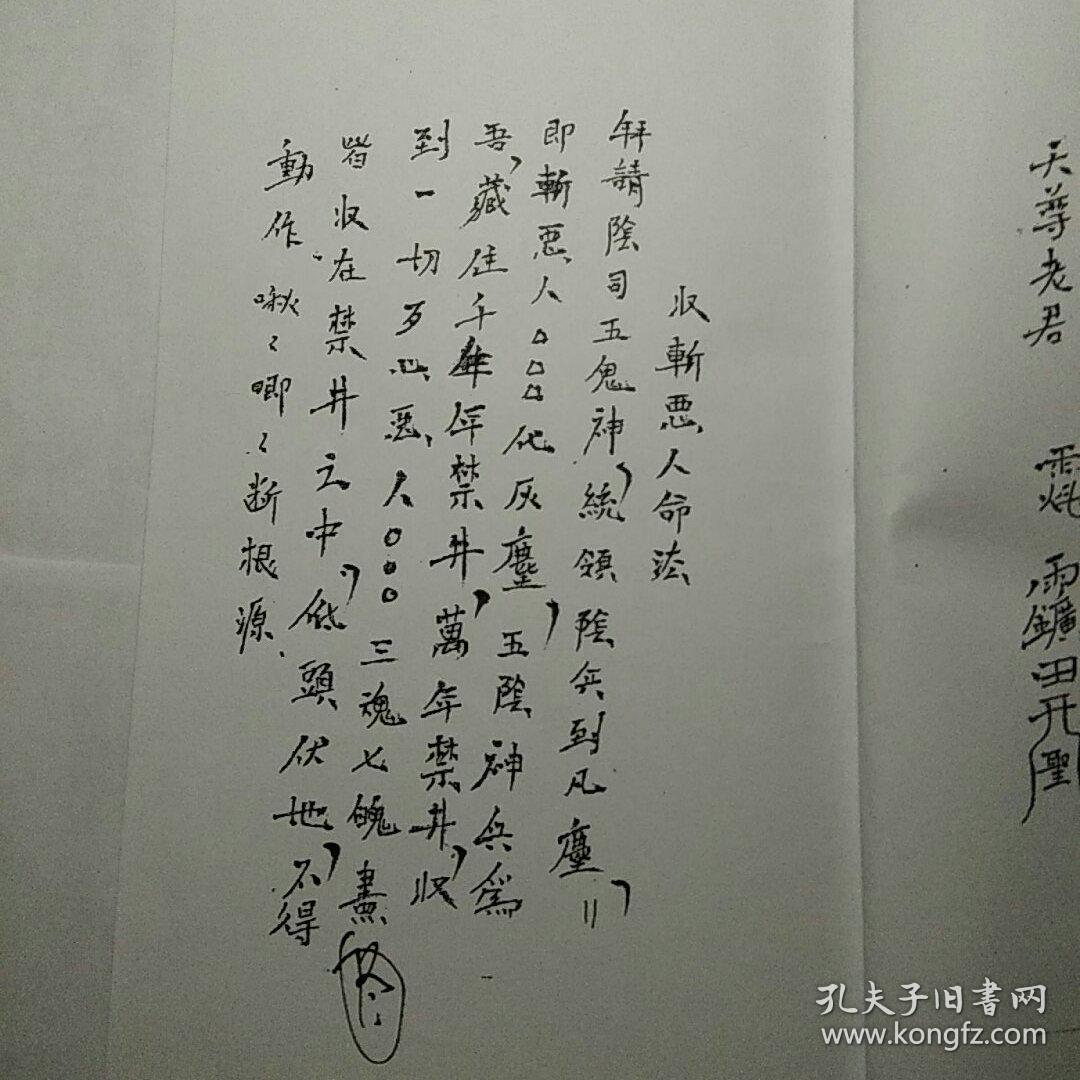 天尊老君
收斬惡人命法
拜請陰司五鬼神,統領陰兵到凡塵,〢
即斬惡人△△△化灰塵,五陰神兵爲
吾,藏住千年年禁井,萬年禁井,收
到一切歹心惡人○○○三魂七魄盡
皆收在禁井之中,低頭伏地,不得
動作啾々唧々断根源、
孔夫子旧書网
www.kongfz.com